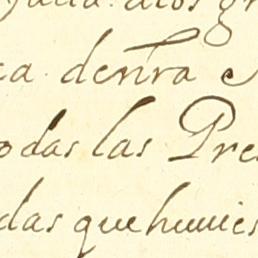 alos
ca denra
odas las Pre
das que huuies